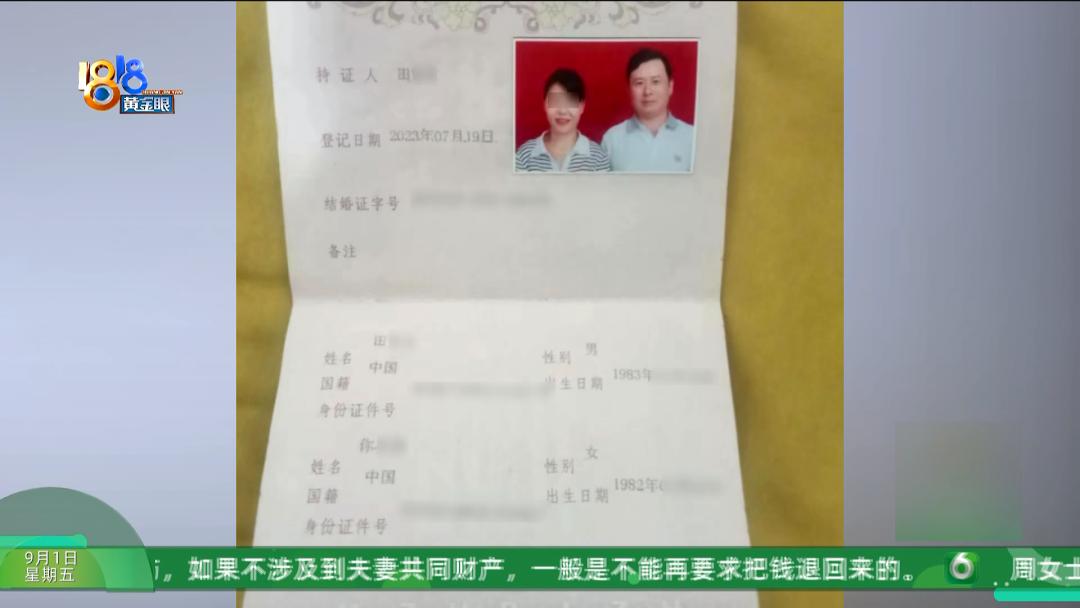 1818
黄金眼
持证人 田
登记日期 2023年07月19日
结婚证字号
备注
姓名 田
性别 男
国籍 中国
出生日期 1983年
身份证件号
姓名
性别 女
国籍 中国
出生日期 1982年
身份证件号
9月1日
星期五
，如果不涉及到夫妻共同财产，一般是不能再要求把钱退回来的。 6 周女士